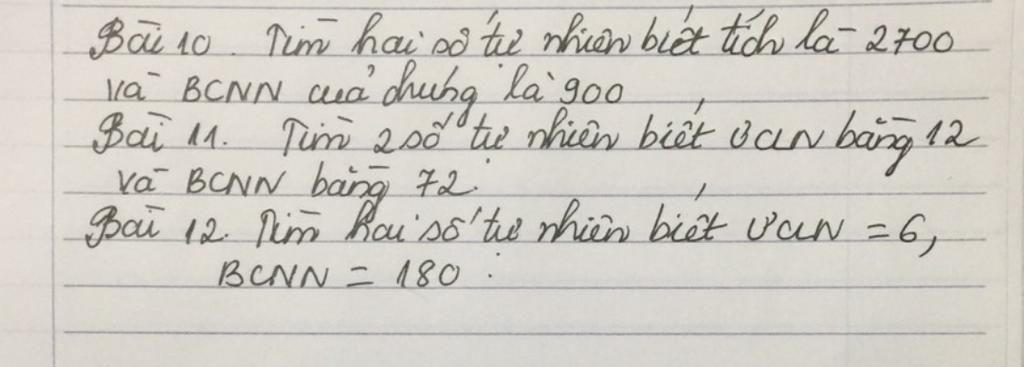 Bài 10. Tìm hai số tự nhiên biết tích là 2700
và BCNN của chúng là 900
Bài 11. Tìm 2 số tự nhiên biết ƯCLN bằng 12
và BCNN bằng 72.
Bài 12. Tìm hai số tự nhiên biết ƯCLN = 6,
BCNN = 180.